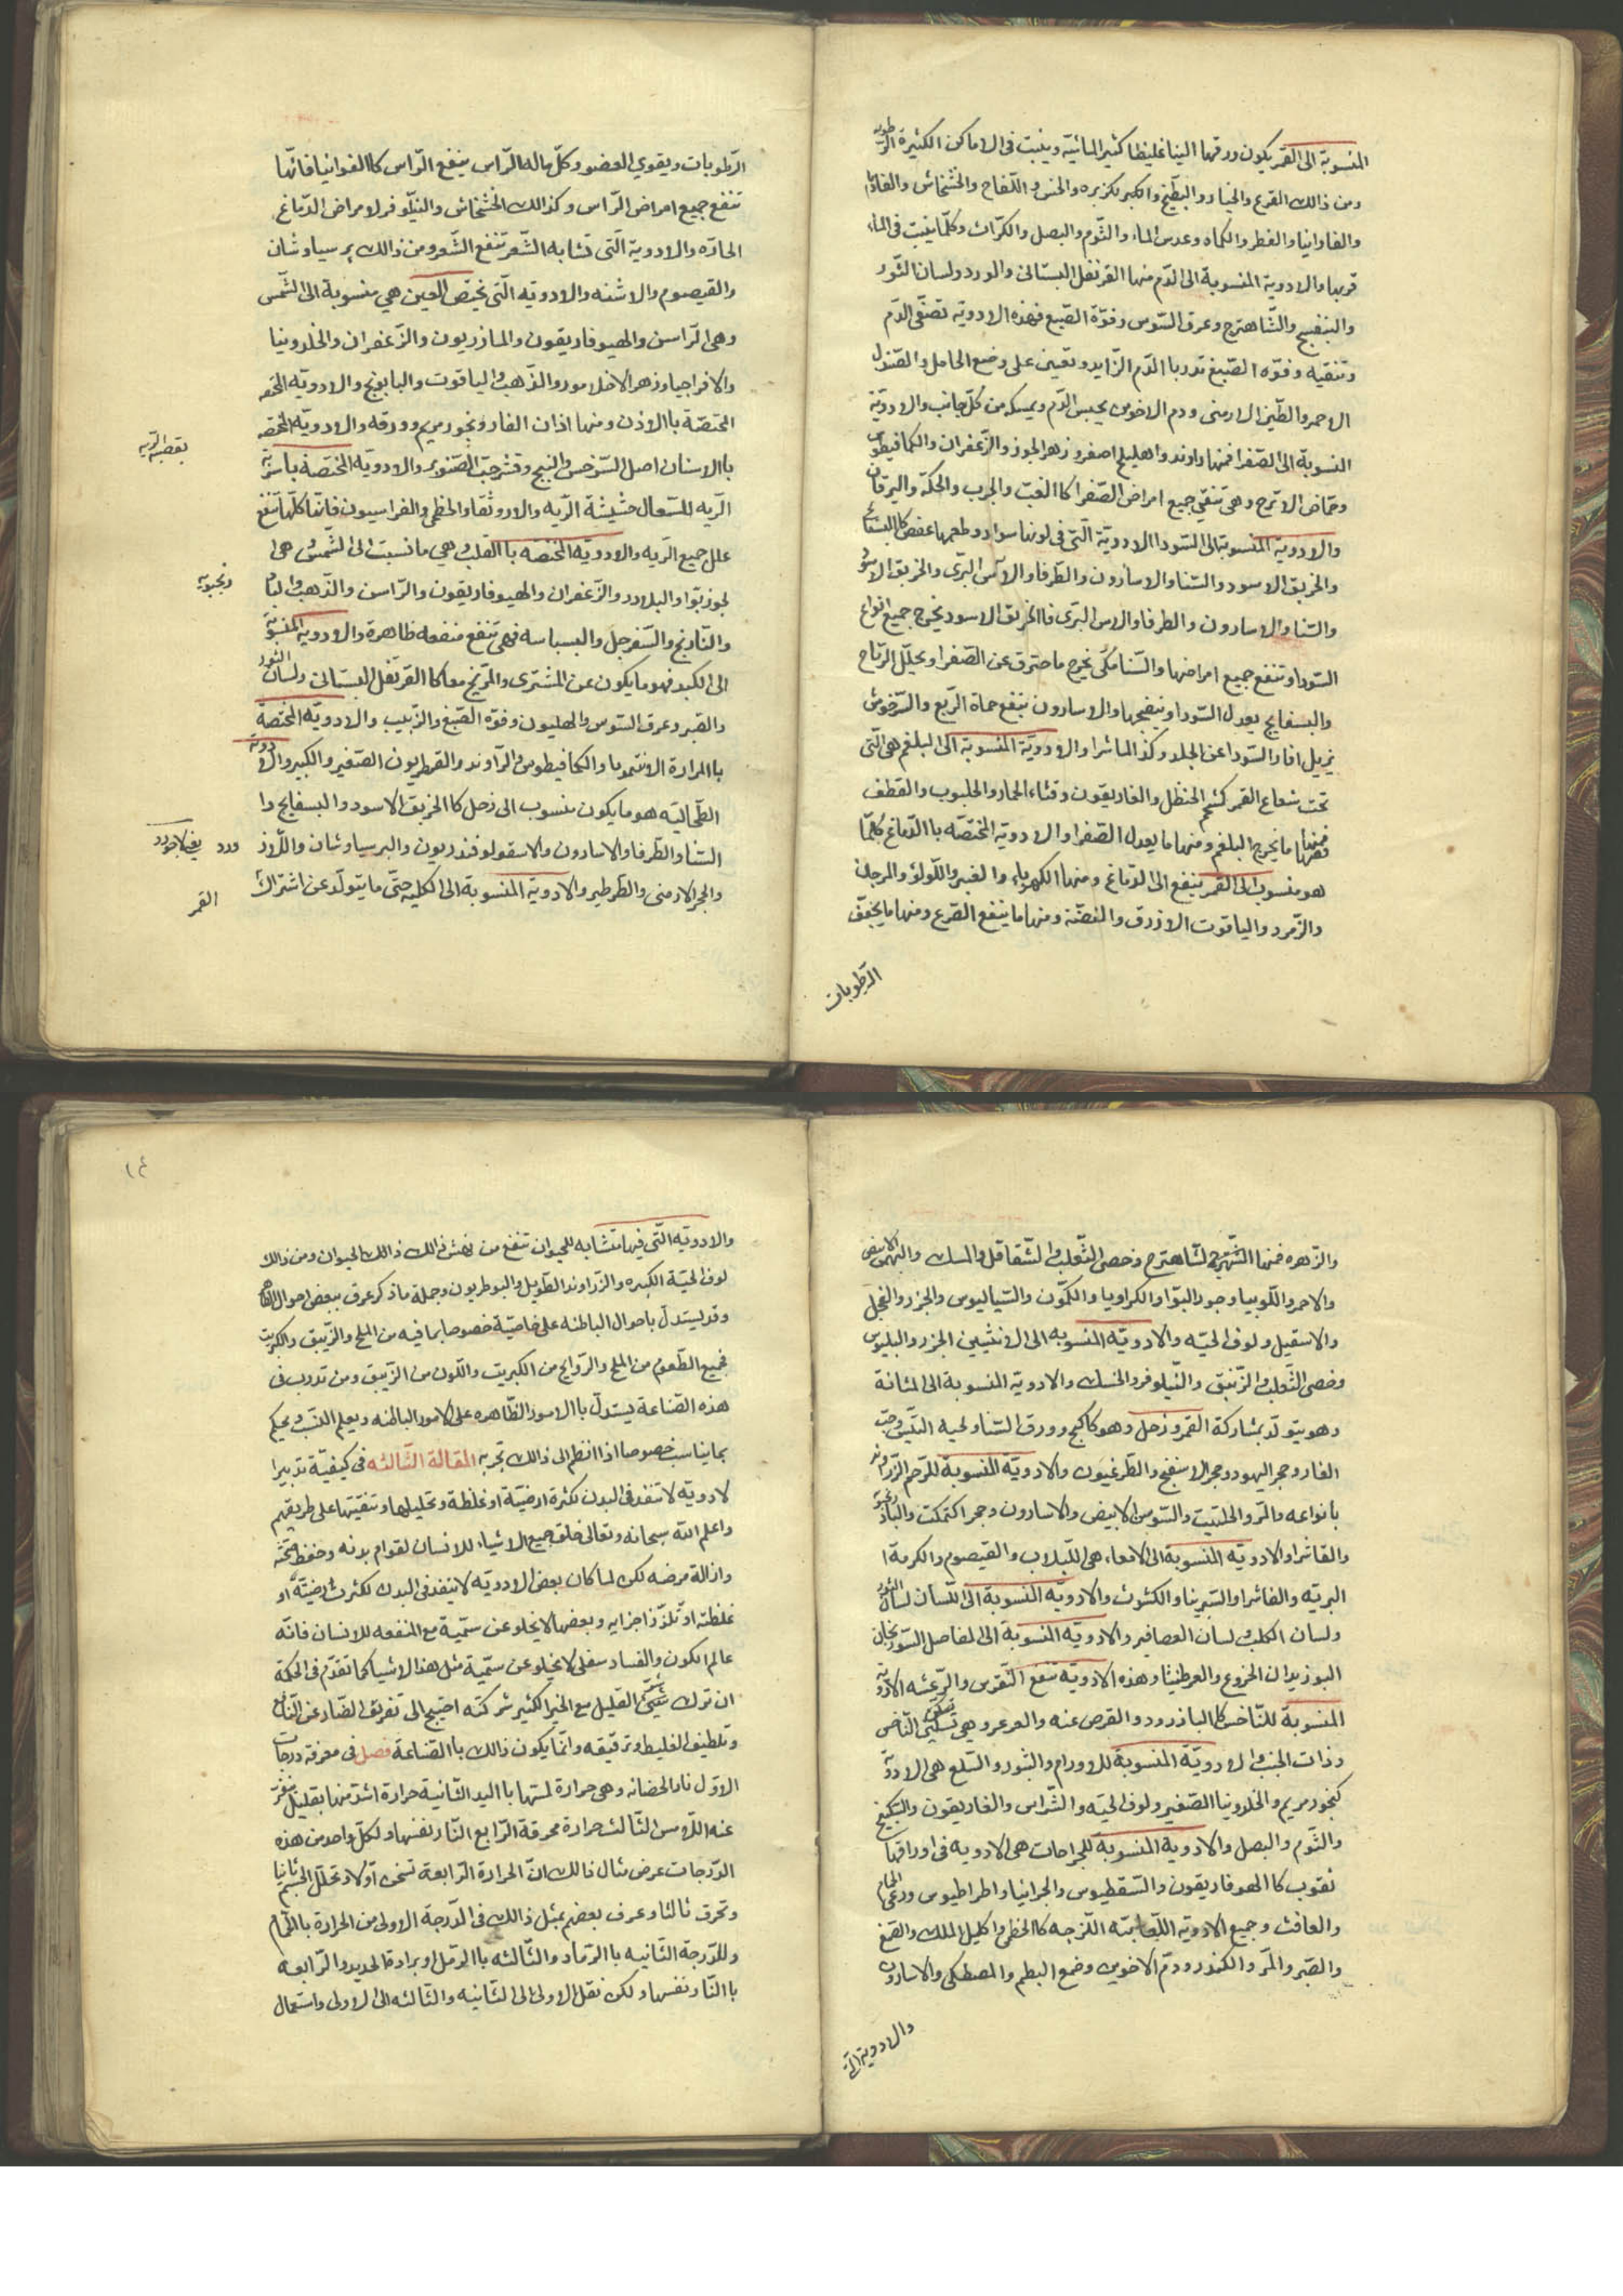 المنسوبة الى القمر يكون ورقها لينا غليظا كثير المائية وينبت فى الاماكن الكثيرة الرطوبه
ومن ذالك القرع والخيار والبطيخ والكبر بكزبره والخس و اللفاح والخشخاش والفاوانيا
والفاوانيا والفطر والكماه وعدس الماء والثوم والبصل والكراث وكلما ينبت فى الماء
قربها والادوية المنسوبة الى الدم منها القرنفل البستانى والورد ولسان الثور
والبنفسج والشاهترج وعرق السوس وفوة الصبغ فهذه الادوية تصفى الدم
وتنقيه وفوه الصبغ تدر باالدم الزايد وتعين على وضع الحامل والصندل
الاحمر والطين الارمنى ودم الاخوين يحبس الدم ويمسكه من كل جانب والادوية
المنسوبة الى الصفرا فمنها راوند واهليلج اصفر وزهر الجوز والزعفران والكمافيطوس
وحماض الاترج وهى تنقي جميع امراض الصفرا كاالغب والجرب والحكة واليرقان
والادوية المنسوبة الى السودا الادوية التى فى لونها سواد وطعمها عفص كالبسفايج
والخربق الاسود والسنا والاسارون والطرفا والآس البرى والخربق الاسود
والسنا والاسارون والطرفا والاس البرى فاالخربق الاسود يخرج جميع انواع
السودا وتنفع جميع امراضها والسنامكى يخرج ما حترق عن الصفرا ويحلل الرياح
والبسفايج يعدل السودا وينضجها والاسارون ينفع حماة الربع والسرخوش
يزيل اثار السودا عن الجلد وكذ الماشرا والادوية المنسوبة الى البلغم هى التى
تحت شعاع القمر كشحم الحنظل والغاريقون وقثاء الحمار والحلبوب والقطف
فمنها ما يخرج البلغم ومنها ما يعدل الصفرا والادويه المختصه باالدماغ كلما
هو منسوب الى القمر ينفع الى الدماغ ومنها الكهرباء والعنبر واللولؤ والمرجان
والزمرد والياقوت الازرق والفضة ومنها ما ينفع الصرع ومنها ما يجفف
الرطوبات
الرطوبات ويقوي العضو وكل ماله الراس ينفع الراس كاالفوانيا فانها
تنفع جميع امراض الراس وكذالك الخشخاش والنيلوفر لامراض الدماغ
الحاره والادوية التى تشابه الشعر تنفع الشعر ومن ذالك برسياوشان
والقيصوم والاشنه والادويه التى تختص العين هي منسوبة الى الشمس
وهى الراسن والهيوفاريقون والمازريون والزعفران والخلدونيا
والافراجيا وزهر الاخلامور والذهب والياقوت والبابونج والادويه المختصه
المختصة باالاذن ومنها اذان الفار وبخور مريم وورقه والادوية المختصه
باالاسنان اصل السرخس والبنج وقشر حب الصنوبر والادويه المختصة
الريه للسعال حشيشة الريه والاروثقا والخطمى والفراسيون فانها كلها تنفع
علل جميع الريه والادويه المختصه باالقلب وهي ما نسبت الى الشمس وهى
لجوز بوا والبلادر والزعفران والهيوفاريقون والراسن والذهب
والنارنج والسفرجل والبسباسه فهى تنفع منفعه ظاهرة والادويه المنسوبة
الى الكبد فهو ما يكون عن المشترى والمريخ معا كاالقرنفل البستانى ولسان الثور
والصبر وعرق السوس والهليون وفوه الصبغ والزبيب والادويه المختصة
باالمرارة الافتمونيا والكمافيطوس والراوند والقنطريون الصغير والكبير والادوية
الطحاليه هو ما يكون منسوب الى زحل كاالخربق الاسود والبسفايج وا
السنا والطرفا والاسارون والاسقولوفندريون والبرسياوشان واللازورد
والحجر الارمنى والطرطير والادوية المنسوبة الى الكليه حتى ما يتولد عن اشتراك
القمر
والزهره فمنها الشهترج وخصى الثعلب والشقاقل والمسك والبهمن الابيض
والاحمر واللوبيا وجوز البوا والكراويا والكمون والسياليوس والجزر والفجل
والاسقيل ولوف الحيه والادويه المنسوبه الى الانثيين الجزر والبلبوس
وخصى الثعلب والزنبق والنيلوفر والخسك والادوية المنسوبة الى المثانة
وهو يتولد بمشاركة القمر وزحل وهو كاكنج وورق السنا ولحية التيس وحب
الغار وحجر اليهود وحجر الاسفنج والطرغيون والادوية المنسوبة للرحم الزراوند
بانواعه والمر والحلتيت والسوس الابيض والاسارون وحجر اكتمكت
والفاشرا والادويه المنسوبة الى الامعاء هى اللبلاب والقيصوم والكرمة ا
البريه والفاشرا والشبرينا والكشوث والادويه المنسوبة الى اللسان لسان الثور
ولسان الكلب ولسان العصافير والادويه المنسوبة الى المفاصل السورنجان
البوزيدان الخروع والعرطنيثا وهذه الادوية تنفع النقرس والرعشه الادوية
المنسوبة للناخس كاالباذرود والقرصعنه والعرعر وهى تسكن الناخس
وذات الجنب والادوية المنسوبة للاورام والبثور والسلع هى الادوية
كبخور مريم والخلدونيا الصغير ولوف الحيه والشراس والغاريقون والسكبينج
والثوم والبصل والادوية المنسوبة للجراحات هى الادويه فى اوراقها
ثقوب كاالهوفاريقون والسقطيوس والجرانيا واطراطيوس ورعى الحمام
والغافث وجميع الادويه اللعابيه اللزجه كاالخطمى واكليل الملك والصمغ
والصبر والمر والكندر ودم الاخوين وصمغ البطم والمصطكى والاسارون
والادوية التى
١٤
والادويه التى فيها تشابه للحيوان تنفع من نهش ذالك الحيوان ومن ذالك
لوف الحية الكبيره والزراوند الطويل والبوطريون وجملة ما ذكر عرف ببعض احوال
وقد ليستدل باحوال الباطنه على خاصية خصوصا بما فيه من الملح والزيبق والكبريت
فجميع الطعوم من الملح والروايح من الكبريت واللون من الزيبق ومن تدرب فى
هذه الصناعة يستدل باالامور الظاهره على الامور الباطنه ويعلم النسب ويحكم
بما يناسب خصوصا اذا انظم الى ذالك تجربه المقالة الثالثه فى كيفية تدبير ا
لادويه لا تنفد فى البدن لكثرة ارضية او غلظة وتحليلها وتنقيتها على طريقهم
واعلم الله سبحانه وتعالى خلق جميع الاشياء للانسان لقوام بدنه وحفظ صحته
وازالة مرضه لكن لما كان بعض الادويه لا ينفد فى البدن لكثرت ارضيته او
غلظته او تلزز اجزايه وبعضها لا يخلو عن سمية مع المنفعه للانسان فانه
عالم الكون والفساد سفلى لا يخلو عن سمية مثل هذا الاشيا كما تقدم فى الحكمة
ان ترك شئ القليل مع الخير الكثير شركته احتيج الى تفريق الضار عن النافع
وتلطيف الغليظ وترقيقه وانما يكون ذالك باالصناعة فصل فى معرفة درجات
الاول نار الحضانه وهى حرارة لمستها باليد الثانية حرارة اشد منها بقليل
عنه اللامس الثالث حرارة محرقة الرابع النار نفسها ولكل واحد من هذه
الدرجات عرض مثال ذالك ان الحرارة الرابعة تسخن اولا وتحلل الجسم ثانيا
وتحرق ثالثا وعرف بعضهم بمثل ذالك فى الدرجة الاولى من الحرارة باالحمام
وللدرجة الثانيه باالرماد والثالثه باالرمل او برادة الحديد والرابعه
باالنار نفسها ولكن نقل الاولى الى الثانيه والثالثه الى الاولى واستعمال